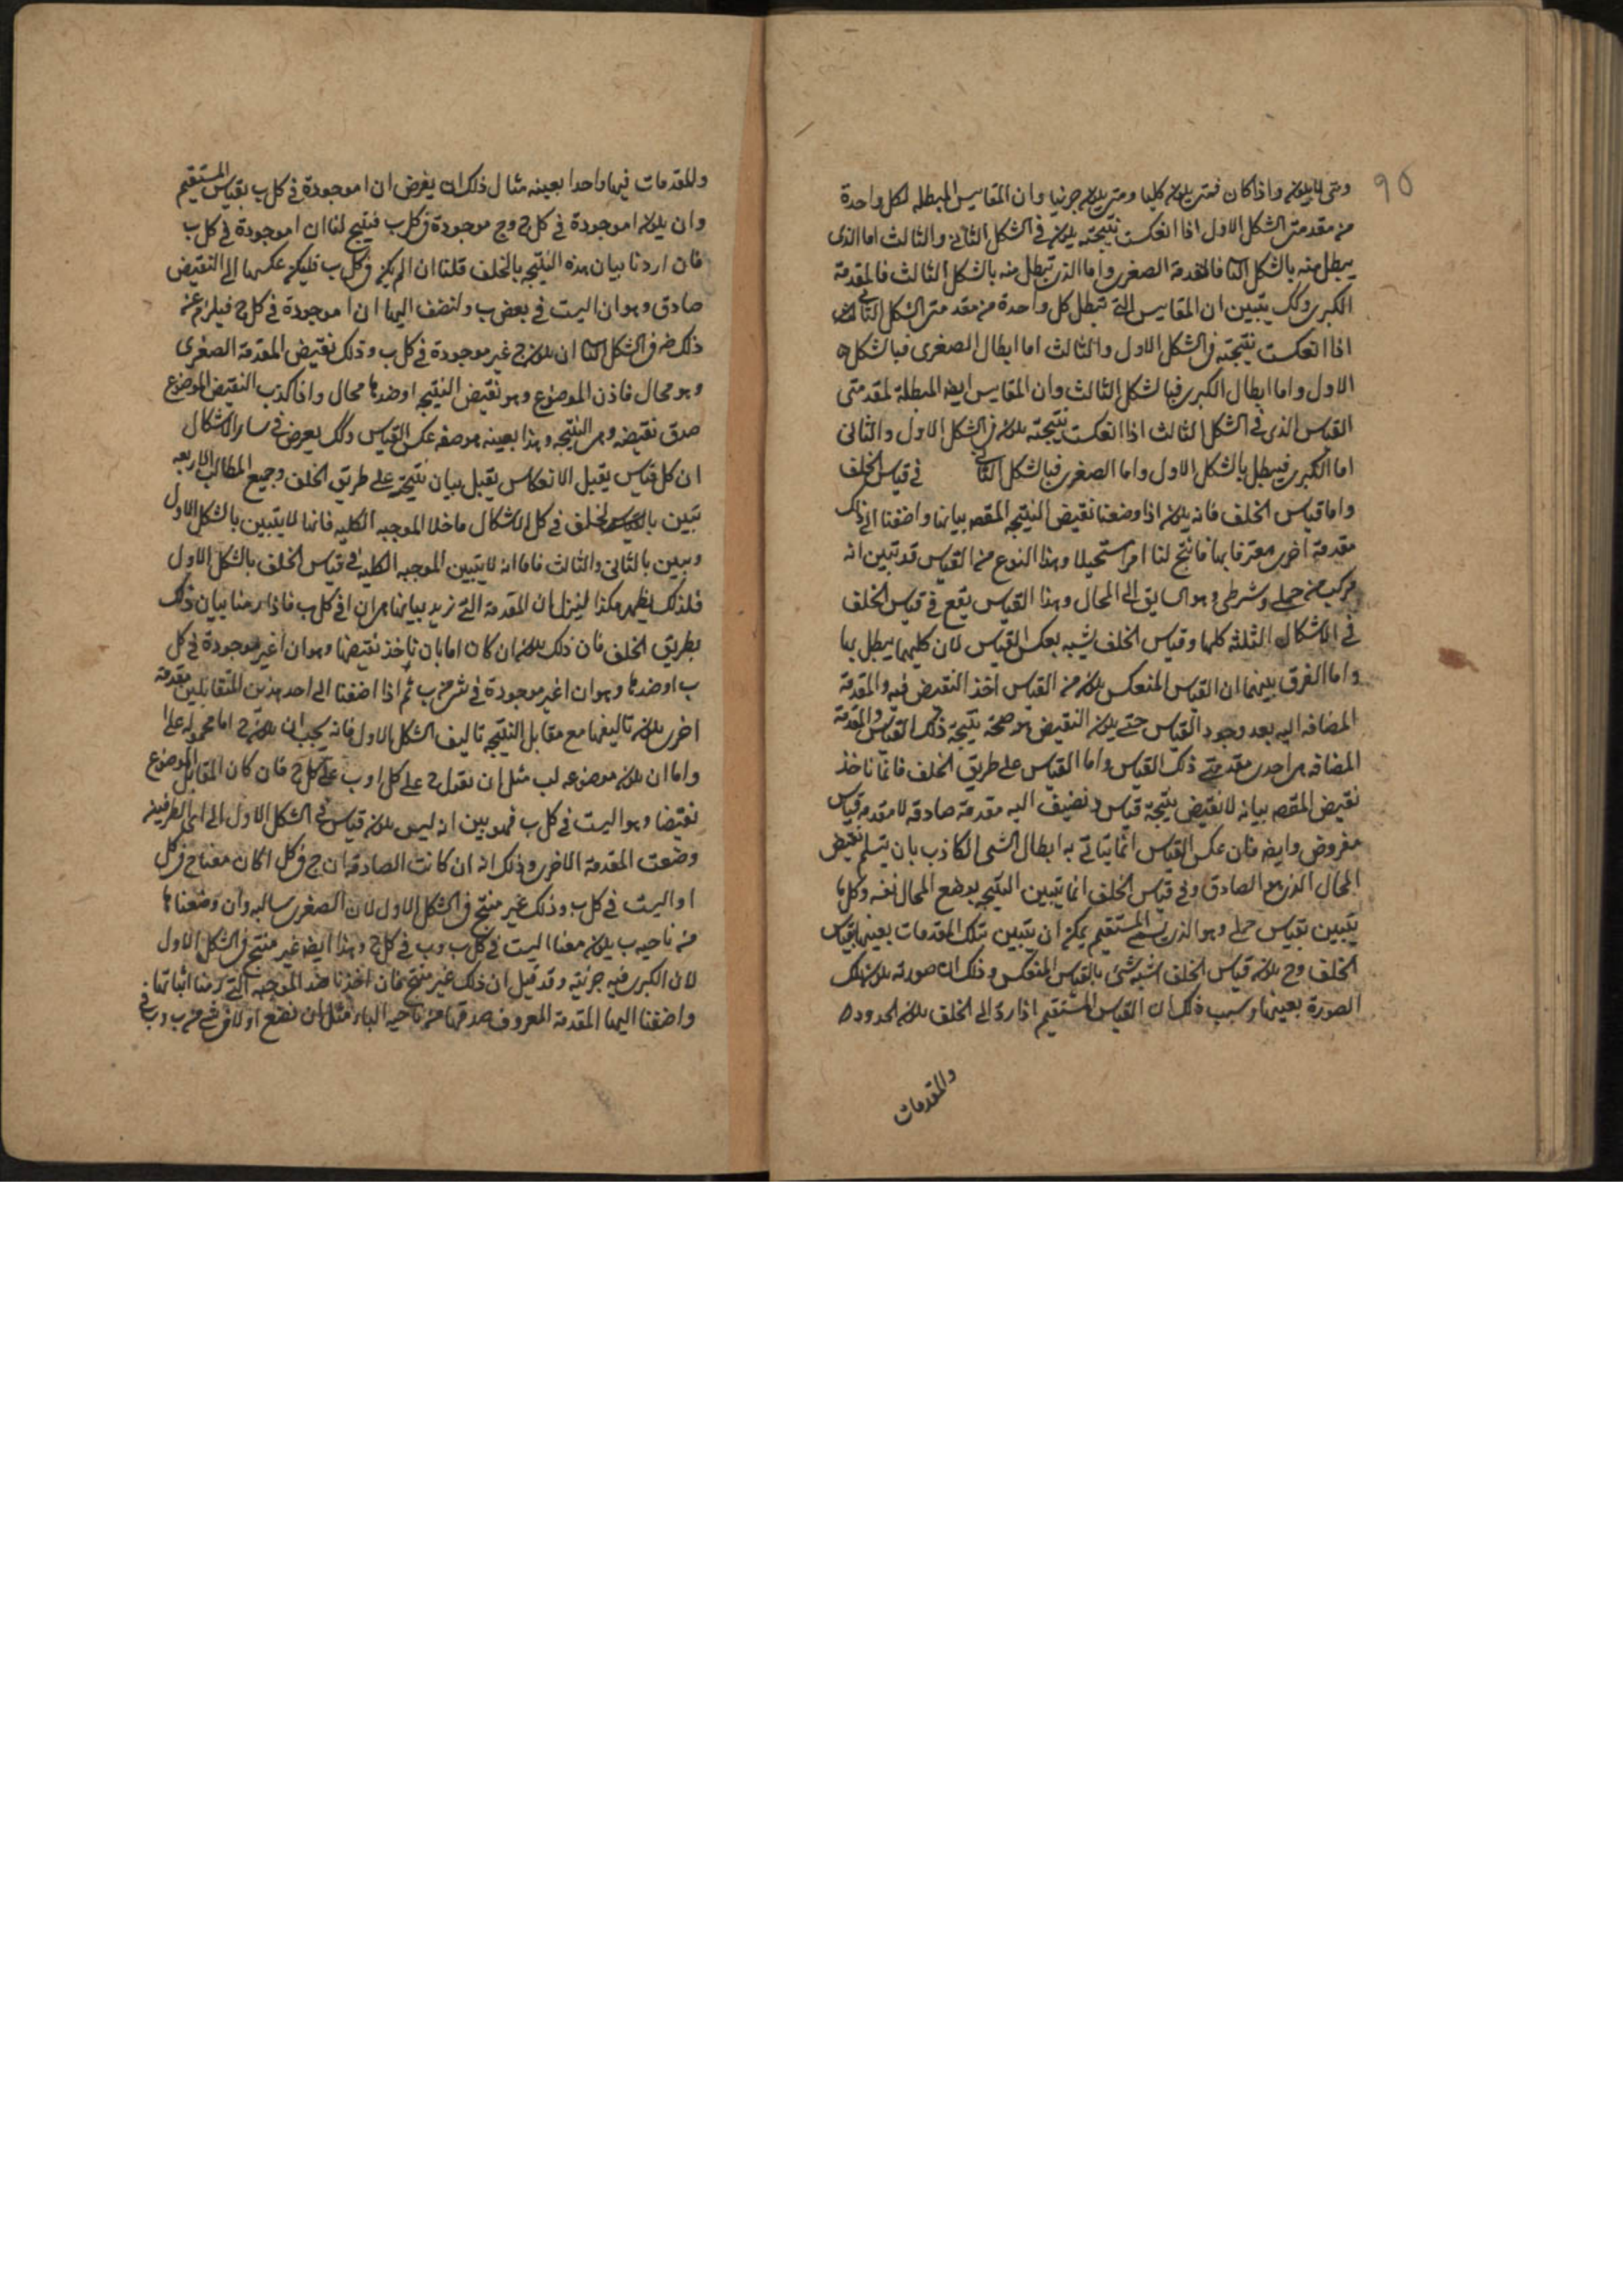 95
ومتى لا يكون واذا كان فمتى يكون كليا ومتى يكون جزئيا وان المقاييس المبطله لكل واحدة
من مقدمتى الشكل الاول اذا انعكست نتيجته يكون فى الشكل الثانى والثالث اما الذى
يبطل منه بالشكل الثانى فالمقدمة الصغرى واما الذى تبطل منه بالشكل الثالث فالمقدمة
الكبرى وكك يتبين ان المقاييس التى تبطل كل واحدة من مقدمتى الشكل الثانى
اذا انعكست نتيجته فى الشكل الاول والثالث اما ابطال الصغرى فبالشكل
الاول واما ابطال الكبرى فبالشكل الثالث وان المقاييس ايضه المبطلة لمقدمتى
القياس الذى فى الشكل الثالث اذا انعكست نتيجته يكون فى الشكل الاول والثانى
اما الكبرى فيبطل بالشكل الاول واما الصغرى فبالشكل الثانى فى قياس الخلف
واما قياس الخلف فانه يكون اذا وضعنا نقيض النتيجه المقصه بيانها واضفنا الى ذلك
مقدمة اخرى معترفا بها فانتج لنا امرا مستحيلا وهذا النوع من القياس قد تبين انه
مركب من حملى وشرطى وهو السايق الى المحال وهذا القياس يقع فى قياس الخلف
فى الاشكال الثلثه كلها وقياس الخلف شبيه بعكس القياس لان كليهما يبطل بها
واما الفرق بينهما ان القياس المنعكس يكون من القياس اخذ النقيض فيه والمقدمة
المضافه اليه بعد وجود القياس حتى يكون النقيض هو صحة نتيجة ذلك القياس والمقدمة
المضافه هى احدى مقدمتى ذلك القياس واما القياس على طريق الخلف فانما ناخذ
نقيض المقصه بيانه لا نقيض نتيجة قياس ونضيف اليه مقدمة صادقه لا مقدمه قياس
مفروض وايضه فان عكس القياس انما يتاتى به ابطال الشى الكاذب بان يتسلم نقيض
المحال الذى هو الصادق وفى قياس الخلف انما يتبين النتيجه بوضع المحال نفسه وكل ما
يتبين بقياس حملى وهو الذى يسمى المستقيم يمكن ان يتبين بتلك المقدمات بعينها بقياس
الخلف وح يكون قياس الخلف اشبه شى بالقياس المنعكس وذلك ان صورته يكون تلك
الصورة بعينها وسبب ذلك ان القياس المستقيم اذا رد الى الخلف يكون الحدود
والمقدمات
والمقدمات فيها واحدا بعينه مثال ذلك ان يفرض ان ا موجودة فى كل ب بقياس المستقيم
وان يكون ا موجودة فى كل ج وج موجودة فى كل ب فينتج لنا ان ا موجودة فى كل ب
فان اردنا بيان هذه النتيجه بالخلف قلنا ان لم يكن فى كل ب فليكن عكسها الى النقيض
صادق وهو ان ا ليست فى بعض ب ولنضف اليها ان ا موجودة فى كل ج فيلزم عن
ذلك فى الشكل الثانى ان يكون ج غير موجودة فى كل ب وذلك نقيض المقدمة الصغرى
وهو محال فاذن الموضوع وهو نقيض النتيجه او ضدها محال واذا كذب النقيض الموضوع
صدق نقيضه وهى النتيجه وهذا بعينه هو صفه عكس القياس وكك يعرض فى ساير الاشكال
ان كل قياس يقبل الانعكاس يقبل بيان نتيجته على طريق الخلف وجميع المطالب الاربعه
تبين بالقياس الخلف فى كل الاشكال ما خلا الموجبه الكليه فانها لا يتبين بالشكل الاول
ويبين بالثانى والثالث فاما انه لا يتبين الموجبه الكليه فى قياس الخلف بالشكل الاول
فلذلك يظهر هكذا لينزل ان المقدمة التى نريد بيانها هى ان ا فى كل ب فاذا رمنا بيان ذلك
بطريق الخلف فان ذلك يكون ان كان اما بان ناخذ نقيضها وهو ان ا غير موجودة فى كل
ب او ضدها وهو ان ا غير موجودة فى شى من ب ثم اذا اضفنا الى احد هذين المتقابلين مقدمة
اخرى يكون تاليفها مع مقابل النتيجه تاليف الشكل الاول فانه يجب ان يكون ج اما محموله على ا
واما ان يكون موضوعه لب مثل ان نقول ج على كل ا وب على كل ج فان كان المقابل الموضوع
نقيضا وهو ا ليست فى كل ب فهو بين انه ليس يكون قياس فى الشكل الاول الى اى الطرفين
وضعت المقدمة الاخرى وذلك انه ان كانت الصادقه ان ج فى كل ا كان معنا ج فى كل
ا وا ليست فى كل ب وذلك غير منتج فى الشكل الاول لان الصغرى سالبه وان وضعناها
من ناحيه ب يكون معنا ا ليست فى كل ب وب فى كل ج وهذا ايضه غير منتج فى الشكل الاول
لان الكبرى فيه جزئيه وقد قيل ان ذلك غير منتج فان اخذنا ضد الموجبه التى رمنا اثباتها
واضفنا اليها المقدمة المعروف صدقها من ناحيه الباء مثل ان نضع ا ولا فى شى من ب وب فى